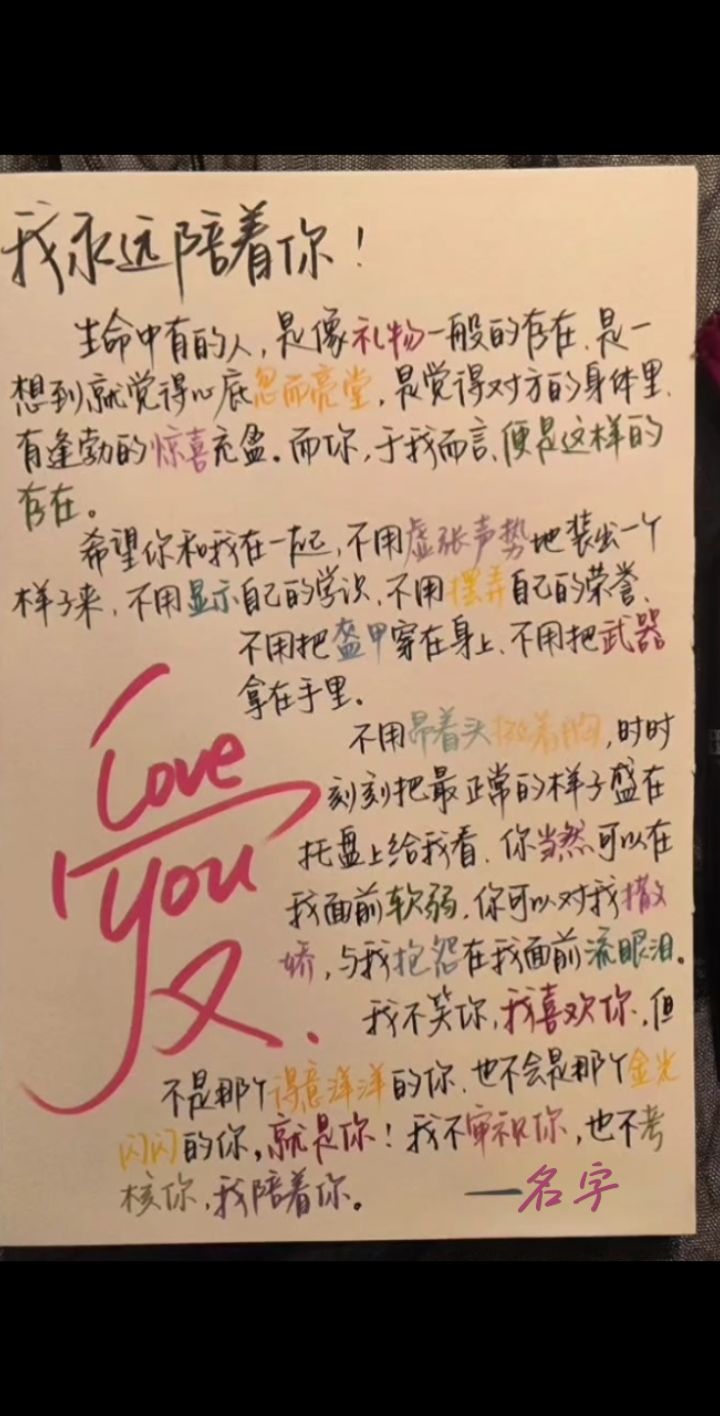 我永远陪着你！
生命中有的人，是像礼物一般的存在、是一
想到就觉得心底忽而亮堂，是觉得对方的身体里、
有蓬勃的惊喜充盈。而你，于我而言、便是这样的
存在。
希望你和我在一起，不用虚张声势地装出一个
样子来，不用显示自己的学识、不用摆弄自己的荣誉、
不用把盔甲穿在身上、不用把武器
拿在手里。
不用昂着头挺着胸，时时
刻刻把最正常的样子盛在
托盘上给我看、你当然可以在
我面前软弱，你可以对我撒
娇，与我抱怨在我面前流眼泪。
我不笑你，我喜欢你，但
不是那个得意洋洋的你、也不会是那个金光
闪闪的你，就是你！我不审视你，也不考
核你，我陪着你。 ——名字
Love
You
友.